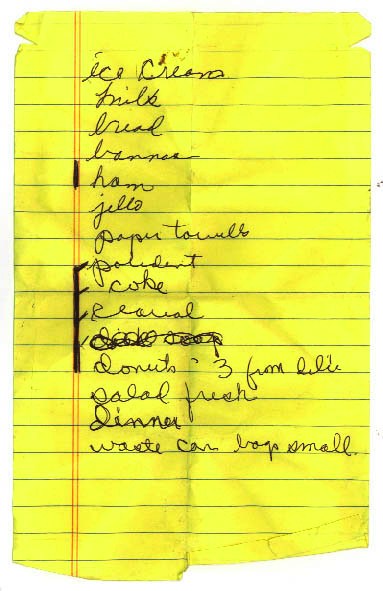 ice cream
milk
bread
bannas
ham
jello
paper towells
polident
coke
cereial
dish soap
donuts - 3 from deli
salad fresh
dinner
waste can bags small